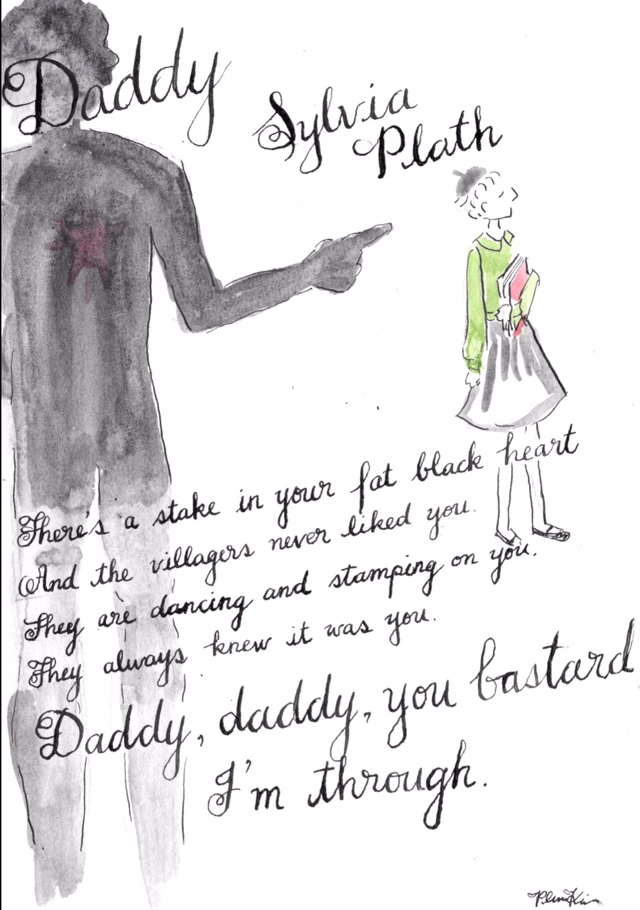 Daddy
Sylvia
Plath
There's a stake in your fat black heart
And the villagers never liked you.
They are dancing and stamping on you.
They always knew it was you.
Daddy, daddy, you bastard
I'm through.